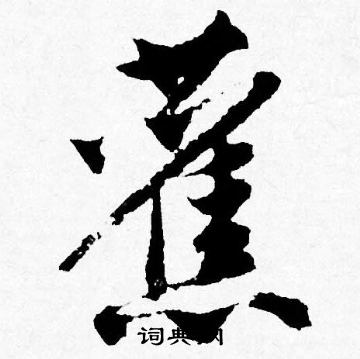 蕉
词典网